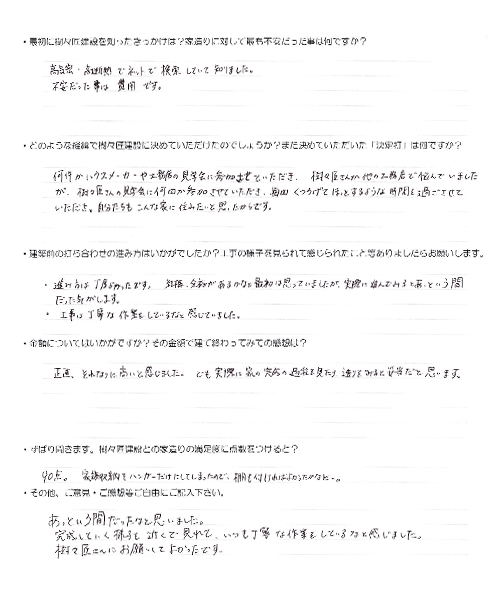 ・最初に樹々匠建設を知ったきっかけは？家造りに対して最も不安だった事は何ですか？
高気密・高断熱でネットで検索していて知りました。
不安だった事は費用です。
・どのような経緯で樹々匠建設に決めていただけたのでしょうか？また決めていただいた「決定打」は何ですか？
何件かハウスメーカーや工務店の見学会に参加させていただき、樹々匠さんか他の工務店で悩んでいました
が、樹々匠さんの見学会に何回か参加させていただき、毎回くつろげてほっとするような時間を過ごさせて
いただき、自分たちもこんな家に住みたいと思ったからです。
・建築前の打ち合わせの進み方はいかがでしたか？工事の様子を見られて感じられたこと等ありましたらお願いします。
・進み方は丁度よかったです。 余裕があるかなと最初は思っていましたが、実際に進んでみるとあっという間
だった気がします。
・工事は丁寧な作業をしているなと感じていました。
・金額についてはいかがですか？その金額で建て終わってみての感想は？
正直、それなりに高いと感じました。でも実際に家の完成の過程を見たり、造りをみると妥当だと思います。
・ずばり聞きます。樹々匠建設との家造りの満足度に点数をつけると？
90点。 収納をハンガーだけにしてしまったので、棚も付ければよかったかなと…。
・その他、ご意見・ご感想等ご自由にご記入下さい。
あっという間だったなと思いました。
完成していく様子も近くで見れて、いつも丁寧な作業をしているなと感じました。
樹々匠さんにお願いしてよかったです。